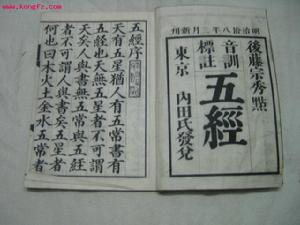 www.kongfz.com
明治拾八年三月新刊
後藤宗秀點
音訓
標註
五經
東京 内田氏發兌
五經序
天有五星猶人有五常書有
五經也天無五星則
天矣人與書無五常與五經
者不可謂人與書矣五星者
何也曰木火土金水五常者